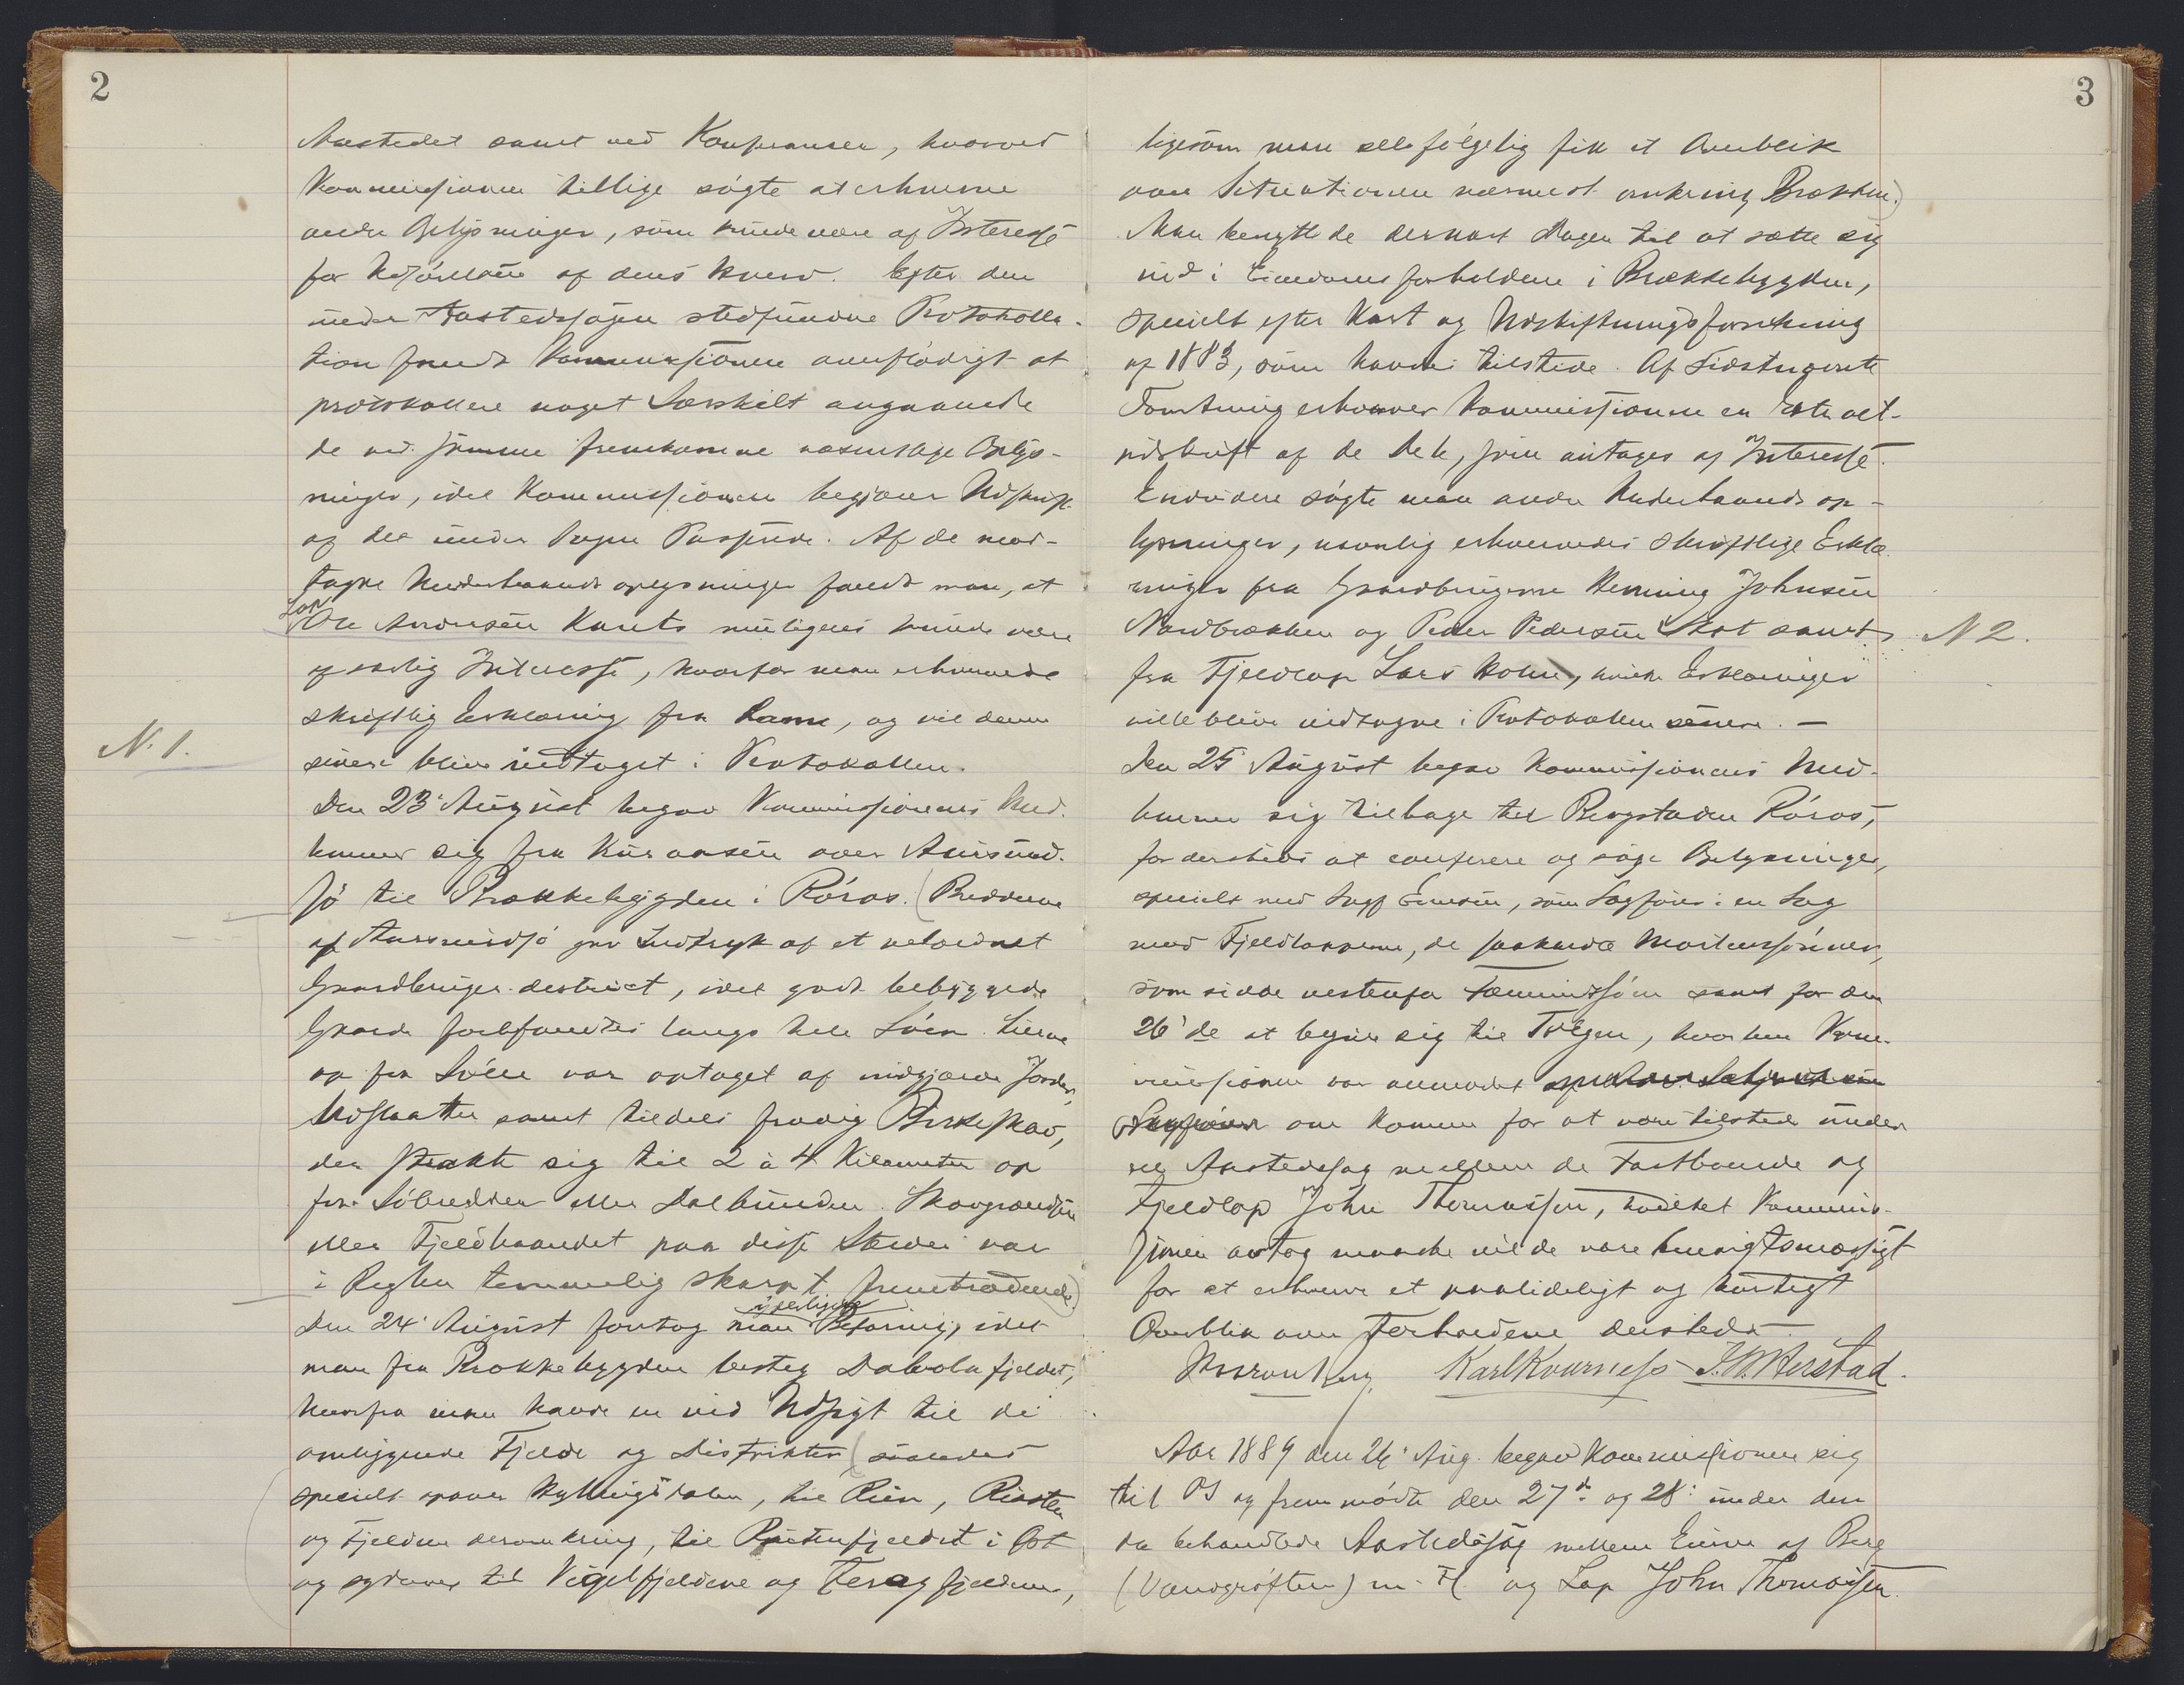 2
Aastedet samt ved Konferanser, hvorved
Kommissionen tillige søgte at erhverve
andre Belysninger, som kunde være af Interesse
for Udførelsen af dens Hverv. Efter den
under Aastedssagen stedfundne Protokolla-
tion fandt Kommissionen overflødigt at
protokollere noget Særskilt angaaende
de ved samme fremkomne væsentlige Belys-
ninger, idet Kommissionen begjærer Udskrift
af det under Sagen Passerede. Af de mod-
tagne Underhaandsoplysninger fandt man, at
Lap
Ole Andersen Kants muligens kunde være
af særlig Interesse, hvorfor man erhvervede
skriftlig Erklæring fra Samme, og vil denne
N. 1.
senere blive indtaget i Protokollen.
Den 23' August begav Kommissionens Med-
lemmer sig fra Kuraasen over Aursund-
sø til Brækkebygden i Røros. (Bredderne
af Aursundsø gav Indtryk af et velordnet
Gaardbruger-destrict, idet godt bebyggede
Gaarde forefandtes langs hele Søen. Lierne
op fra Søen var optaget af indgjærde Jorder,
Udslaatter samt tildels frodig Birkeskov,
der strakte sig til 2 à 4 Kilometer op
fra Søbredden eller Dalbunden. Skovgrændsen
eller Fjeldbaandet paa disse Steder var
i Reglen temmelig skarpt fremtrædende)
Den 24' August foretog man Befaring, idet
man fra Brækkebygden besteg Dalvolafjeldet,
hvorfra man havde en vid Udsigt til de
omliggende Fjelde og Distrikter (saaledes
specielt opover Kyllingsdalen, til Rien, Riasten
og Fjeldene deromkring, til Rutenfjeldet i Øst
og sydover til Vigelfjeldene og Feragfjeldene,
3
ligesom man selvfølgelig fik et Overblik
over Situationen nærmest omkring Brækken.)
Man benyttede dernæst Dagen til at sætte sig
ind i Eiendomsforholdene i Brækkebygden,
specielt efter Kart og Udskiftningsforretning
af 1883, som havdes tilstede. Af Sidstnævnte
Forretning erhverver Kommissionen en Extract-
udskrift af de Dele, som antages af Interesse.
Endvidere søgte man andre Underhaandsop-
lysninger, navnlig erhvervedes skriftlige Erklæ-
ringer fra Gaardbrugerne Henning Johnsen
Nordbrækken og Peder Pedersen Stot samt
N 2.
fra Fjeldlap Lars Holm, hvilke Erklæringer
ville blive indtagne i Protokollen senere. —
Den 25' August begav Kommissionens Med-
lemmer sig tilbage til Bergstaden Røros,
for dersteds at conferere og søge Belysninger,
specielt med Sagf Ellensen, som Sagfører i en Sag
mod Fjeldlapperne, de saakaldte Mortenssønner,
som sidde vestenfor Fæmundssøen samt for den
26'de at begive sig til Tolgen, hvorhen Kom-
missionen var anmodet
om komme for at være tilstede under
en Aastedssag mellem de Fastboende og
Fjeldlap John Thomassen, hvilket Kommis-
sionen antog maaske vilde være hensigtsmæssigt
for at erhverve et paalideligt og hurtigt
Overblik over Forholdene dersteds.
Karl Kvarness J. W. Herstad.
Aar 1889 den 26' Aug. begav Kommissionen sig
til Os og fremmødte den 27de og 28' under den
da behandlede Aastedssag mellem Einar af Berg
(Vangrøften) m. Fl. og Lap John Thomassen.